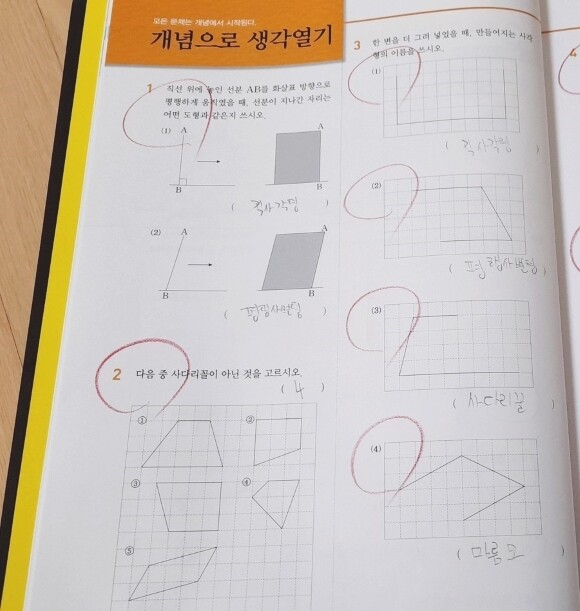 모든 문제는 개념에서 시작된다.
개념으로 생각열기
1 직선 위에 놓인 선분 AB를 화살표 방향으로
평행하게 움직였을 때, 선분이 지나간 자리는
어떤 도형과 같은지 쓰시오.
(1) A A
B B
( 직사각형 )
(2) A A
B B
( 평행사변형 )
2 다음 중 사다리꼴이 아닌 것을 고르시오.
( 4 )
① ②
③ ④
⑤
3 한 변을 더 그려 넣었을 때, 만들어지는 사각
형의 이름을 쓰시오.
(1)
( 직사각형 )
(2)
( 평행사변형 )
(3)
( 사다리꼴 )
(4)
( 마름모 )
4